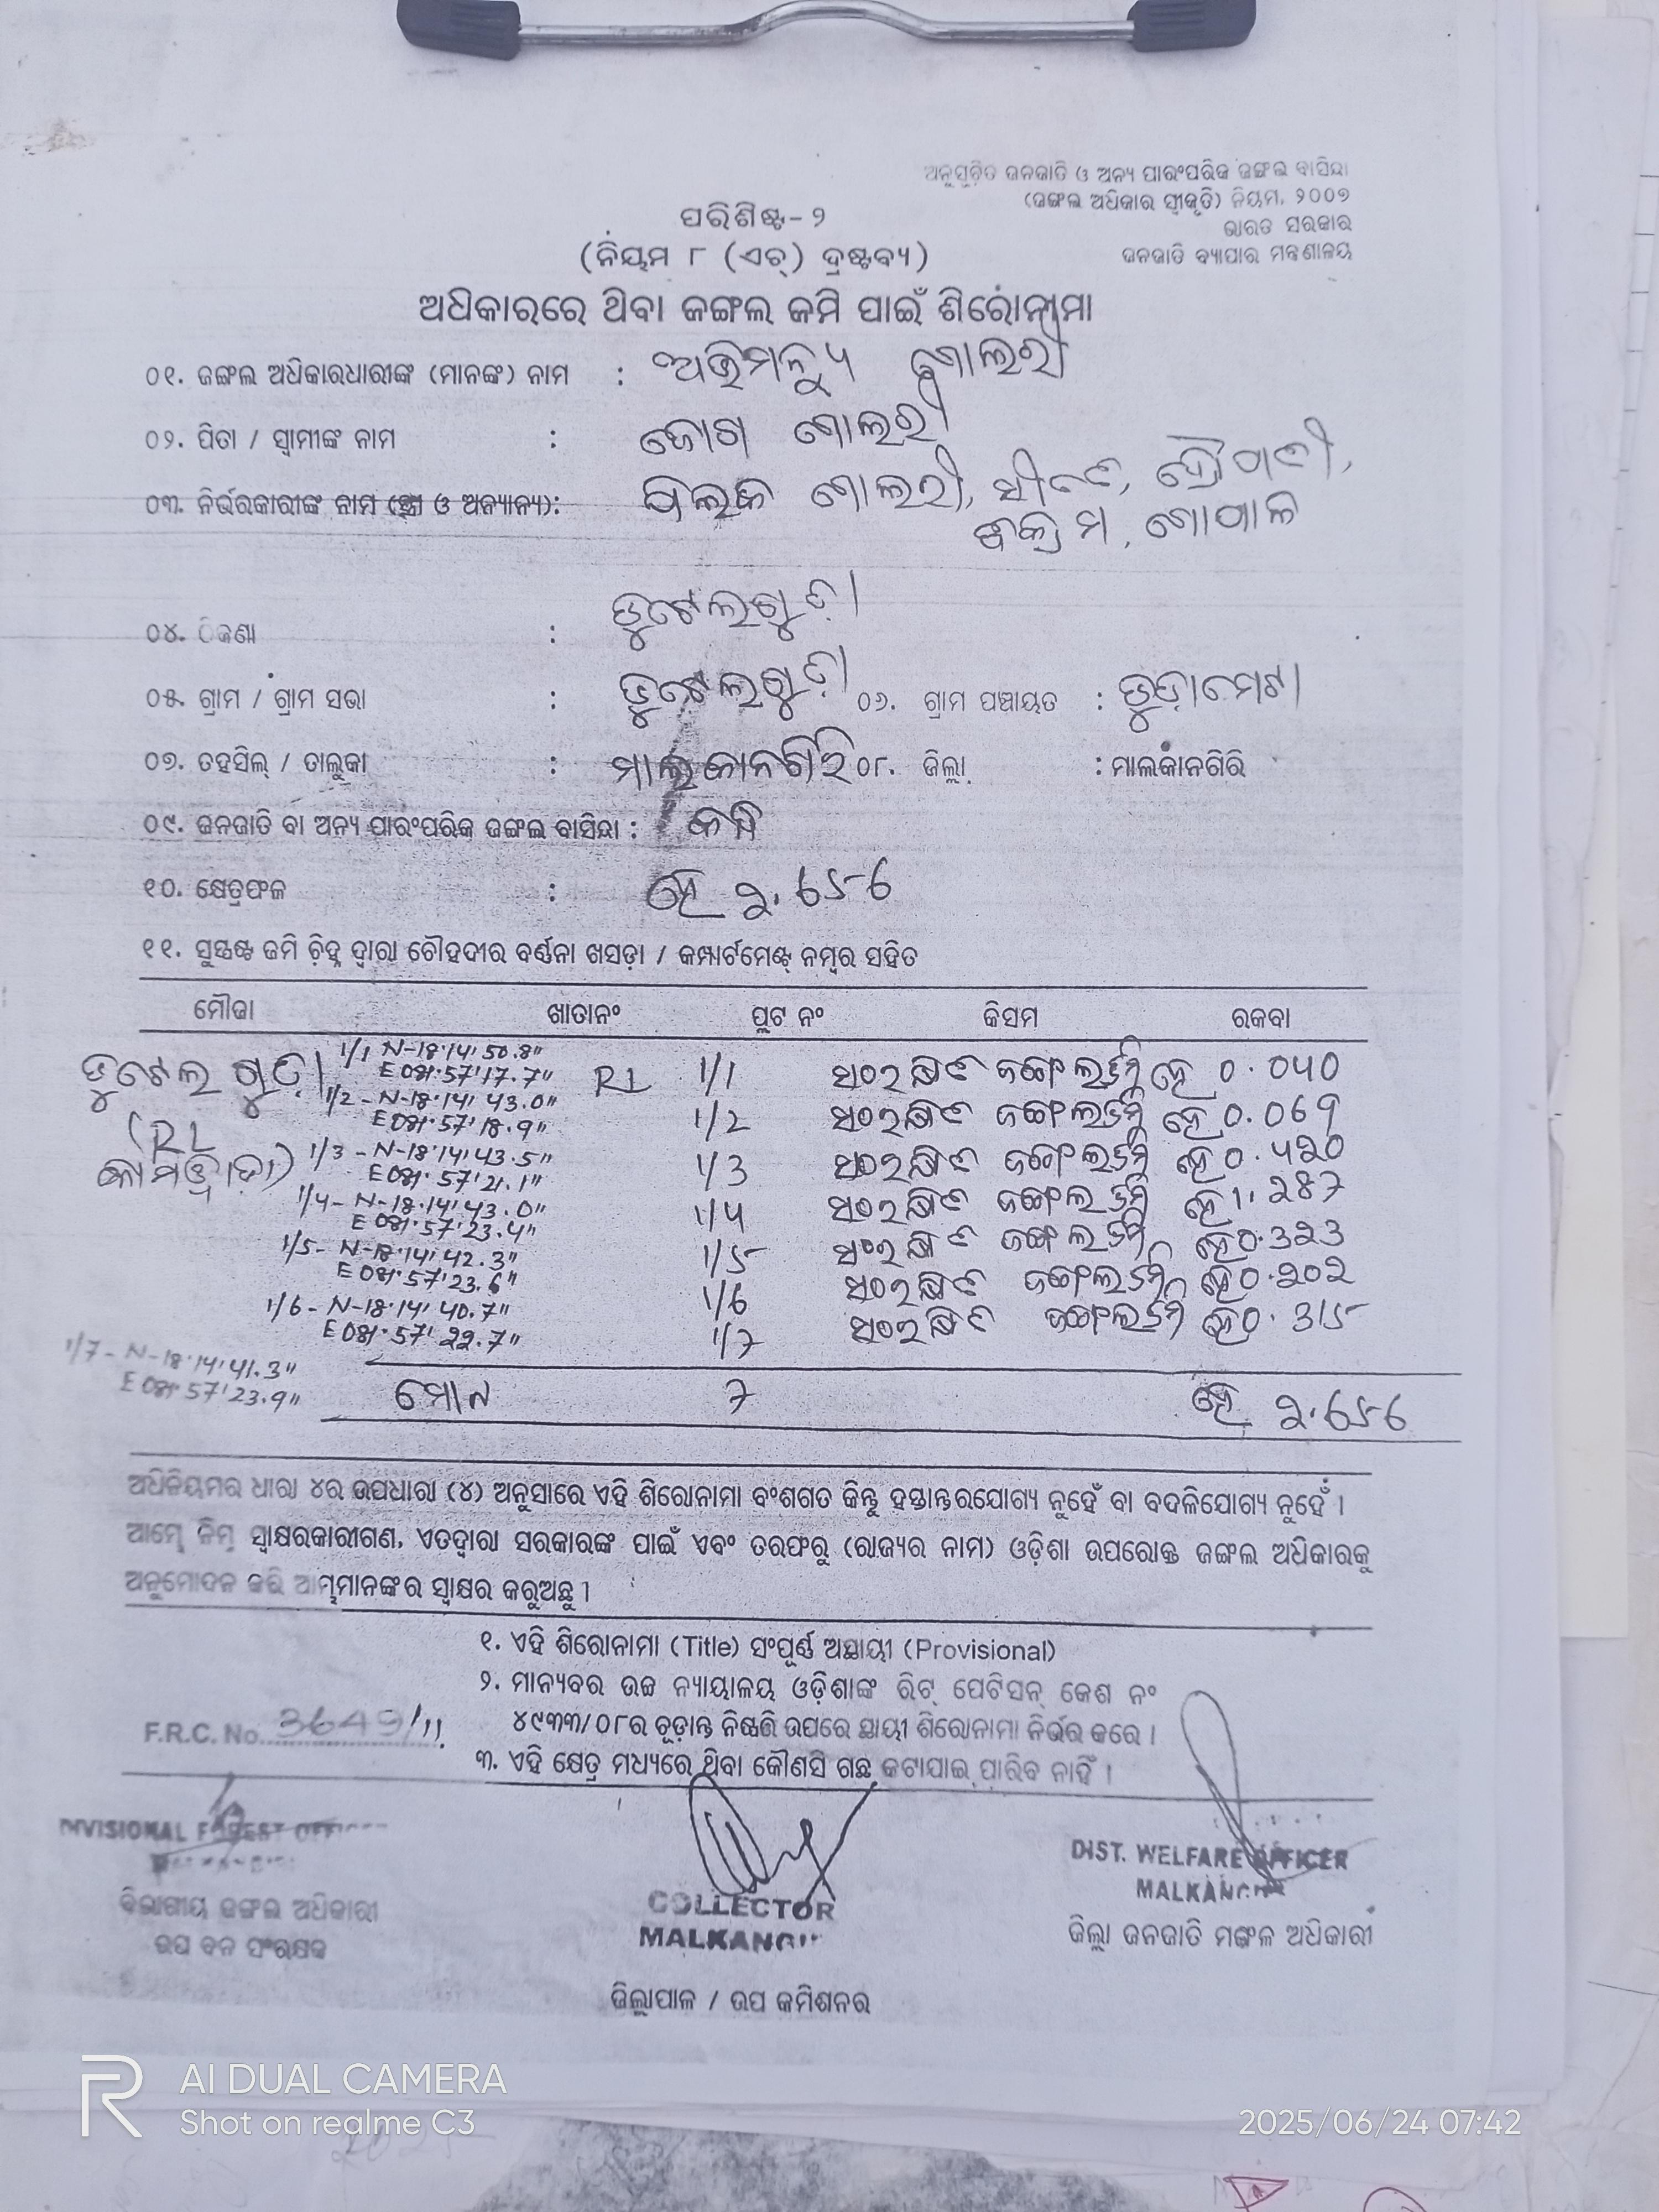 ଅନୁସୂଚିତ ଜନଜାତି ଓ ଅନ୍ୟ ପାରଂପରିକ ଜଙ୍ଗଲ ବାସିନ୍ଦା
(ଜଙ୍ଗଲ ଅଧିକାର ସ୍ୱୀକୃତି) ନିୟମ, ୨୦୦୭
ଭାରତ ସରକାର
ଜନଜାତି ବ୍ୟାପାର ମନ୍ତ୍ରଣାଳୟ
ପରିଶିଷ୍ଟ-୨
(ନିୟମ ୮ (ଏଚ୍) ଦ୍ରଷ୍ଟବ୍ୟ)
ଅଧିକାରରେ ଥିବା ଜଙ୍ଗଲ ଜମି ପାଇଁ ଶିରୋନାମା
୦୧. ଜଙ୍ଗଲ ଅଧିକାରଧାରୀଙ୍କ (ମାନଙ୍କ) ନାମ : ଅଭିମନ୍ୟୁ ଗୋଲରୀ
୦୨. ପିତା / ସ୍ୱାମୀଙ୍କ ନାମ : ଗୋଲରୀ
୦୩. ନିର୍ଭରକାରୀଙ୍କ ନାମ (ସ୍ତ୍ରୀ ଓ ଅନ୍ୟାନ୍ୟ): ଗୋଲରୀ,
ଗୋପାଳ
୦୪. ଠିକଣା : ଭୁଟେଲଗୁଡ଼ା
୦୫. ଗ୍ରାମ / ଗ୍ରାମ ସଭା : ଭୁଟେଲଗୁଡ଼ା ୦୬. ଗ୍ରାମ ପଞ୍ଚାୟତ :
୦୭. ତହସିଲ୍ / ତାଲୁକା : ମାଲକାନଗିରି ୦୮. ଜିଲ୍ଲା : ମାଲକାନଗିରି
୦୯. ଜନଜାତି ବା ଅନ୍ୟ ପାରଂପରିକ ଜଙ୍ଗଲ ବାସିନ୍ଦା :
୧୦. କ୍ଷେତ୍ରଫଳ : ହେ ୨.656
୧୧. ସୁସ୍ପଷ୍ଟ ଜମି ଚିହ୍ନ ଦ୍ୱାରା ଚୌହଦୀର ବର୍ଣ୍ଣନା ଖସଡ଼ା / କମ୍ପାର୍ଟମେଣ୍ଟ୍ ନମ୍ବର ସହିତ
ମୌଜା ଖାତାନଂ ପ୍ଲଟ ନଂ କିସମ ରକବା
ଭୁଟେଲଗୁଡ଼ା 1/1 N-18°14'50.8" RL 1/1 ସଂରକ୍ଷିତ ଜଙ୍ଗଲ ଜମି ହେ 0.040
E 081°57'17.7"
1/2 - N-18°14'43.0" 1/2 ସଂରକ୍ଷିତ ଜଙ୍ଗଲ ଜମି ହେ 0.069
E 081°57'18.9"
(RL
1/3 - N-18°14'43.5" 1/3 ସଂରକ୍ଷିତ ଜଙ୍ଗଲ ଜମି ହେ 0.420
E 081°57'21.1"
1/4 - N-18°14'43.0" 1/4 ସଂରକ୍ଷିତ ଜଙ୍ଗଲ ଜମି ହେ 1.287
E 081°57'23.4"
1/5 - N-18°14'42.3" 1/5 ସଂରକ୍ଷିତ ଜଙ୍ଗଲ ଜମି ହେ 0.323
E 081°57'23.6"
1/6 - N-18°14'40.7" 1/6 ସଂରକ୍ଷିତ ଜଙ୍ଗଲ ଜମି ହେ 0.202
E 081°57'22.7"
1/7 - N-18°14'41.3" 1/7 ସଂରକ୍ଷିତ ଜଙ୍ଗଲ ଜମି ହେ 0.315
E 081°57'23.9"
ମୋଟ 7 ହେ ୨.656
ଅଧିନିୟମର ଧାରା ୪ର ଉପଧାରା (୪) ଅନୁସାରେ ଏହି ଶିରୋନାମା ବଂଶଗତ କିନ୍ତୁ ହସ୍ତାନ୍ତରଯୋଗ୍ୟ ନୁହେଁ ବା ବଦଳିଯୋଗ୍ୟ ନୁହେଁ ।
ଆମ୍ଭେ ନିମ୍ନ ସ୍ୱାକ୍ଷରକାରୀଗଣ, ଏତଦ୍ୱାରା ସରକାରଙ୍କ ପାଇଁ ଏବଂ ତରଫରୁ (ରାଜ୍ୟର ନାମ) ଓଡ଼ିଶା ଉପରୋକ୍ତ ଜଙ୍ଗଲ ଅଧିକାରକୁ
ଅନୁମୋଦନ କରି ଆମ୍ଭମାନଙ୍କର ସ୍ୱାକ୍ଷର କରୁଅଛୁ ।
୧. ଏହି ଶିରୋନାମା (Title) ସଂପୂର୍ଣ୍ଣ ଅସ୍ଥାୟୀ (Provisional)
୨. ମାନ୍ୟବର ଉଚ୍ଚ ନ୍ୟାୟାଳୟ ଓଡ଼ିଶାଙ୍କ ରିଟ୍ ପେଟିସନ୍ କେଶ ନଂ
୪୯୩୩/୦୮ର ଚୂଡ଼ାନ୍ତ ନିଷ୍ପତ୍ତି ଉପରେ ସ୍ଥାୟୀ ଶିରୋନାମା ନିର୍ଭର କରେ ।
F.R.C. No. 3649/11
୩. ଏହି କ୍ଷେତ୍ର ମଧ୍ୟରେ ଥିବା କୌଣସି ଗଛ କଟାଯାଇ ପାରିବ ନାହିଁ ।
DIVISIONAL FOREST OFFICER
ବିଭାଗୀୟ ଜଙ୍ଗଲ ଅଧିକାରୀ
ଉପ ବନ ସଂରକ୍ଷକ
COLLECTOR
MALKANGIRI
ଜିଲ୍ଲାପାଳ / ଉପ କମିଶନର
DIST. WELFARE OFFICER
MALKANGIRI
ଜିଲ୍ଲା ଜନଜାତି ମଙ୍ଗଳ ଅଧିକାରୀ
AI DUAL CAMERA
Shot on realme C3
2025/06/24 07:42